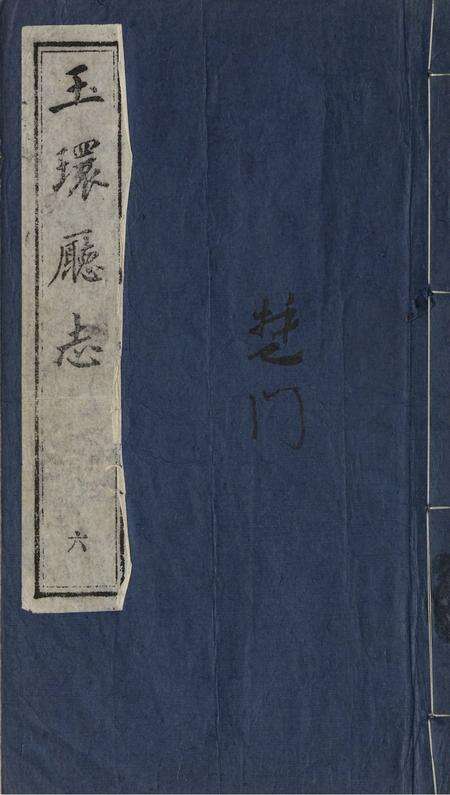 玉環廳志
六
楚门